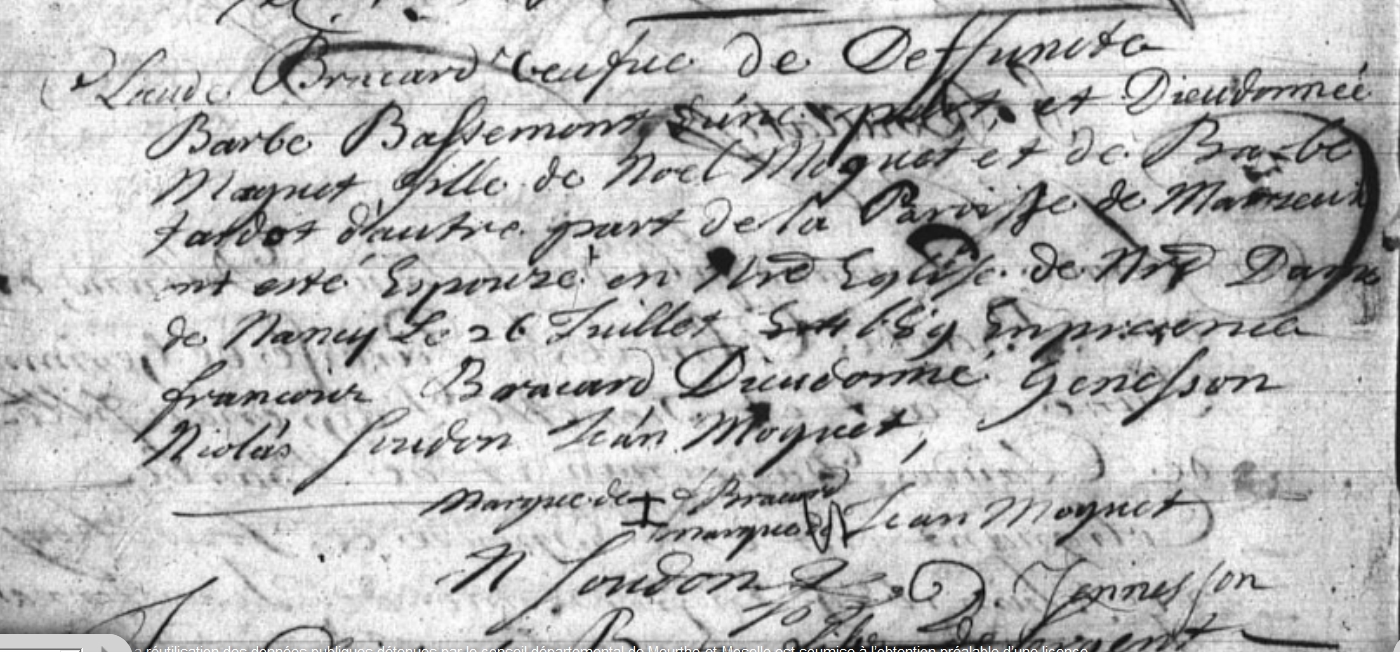 Claude Bracard veufue de Deffuncte
Barbe Bassemont d'une part, et Dieudonnéé
Moquet fille de Noel Moquet et de Barbe
tardot d'autre part de la Paroisse de
ont esté Espouzé en Nre Eglise de Nre Dame
de Nancy Le 26 Juillet 1689 En presence
francois Bracard Dieudonné Genesson
Nicolas Soudon Jean Moquet,
Marque de + f Bracard
marque Jean Moquet
N Soudon D. Jennesson
a réutilisation des données publiques détenues par le conseil départemental de Meurthe-et-Moselle est soumise à l'obtention préalable d'une licence